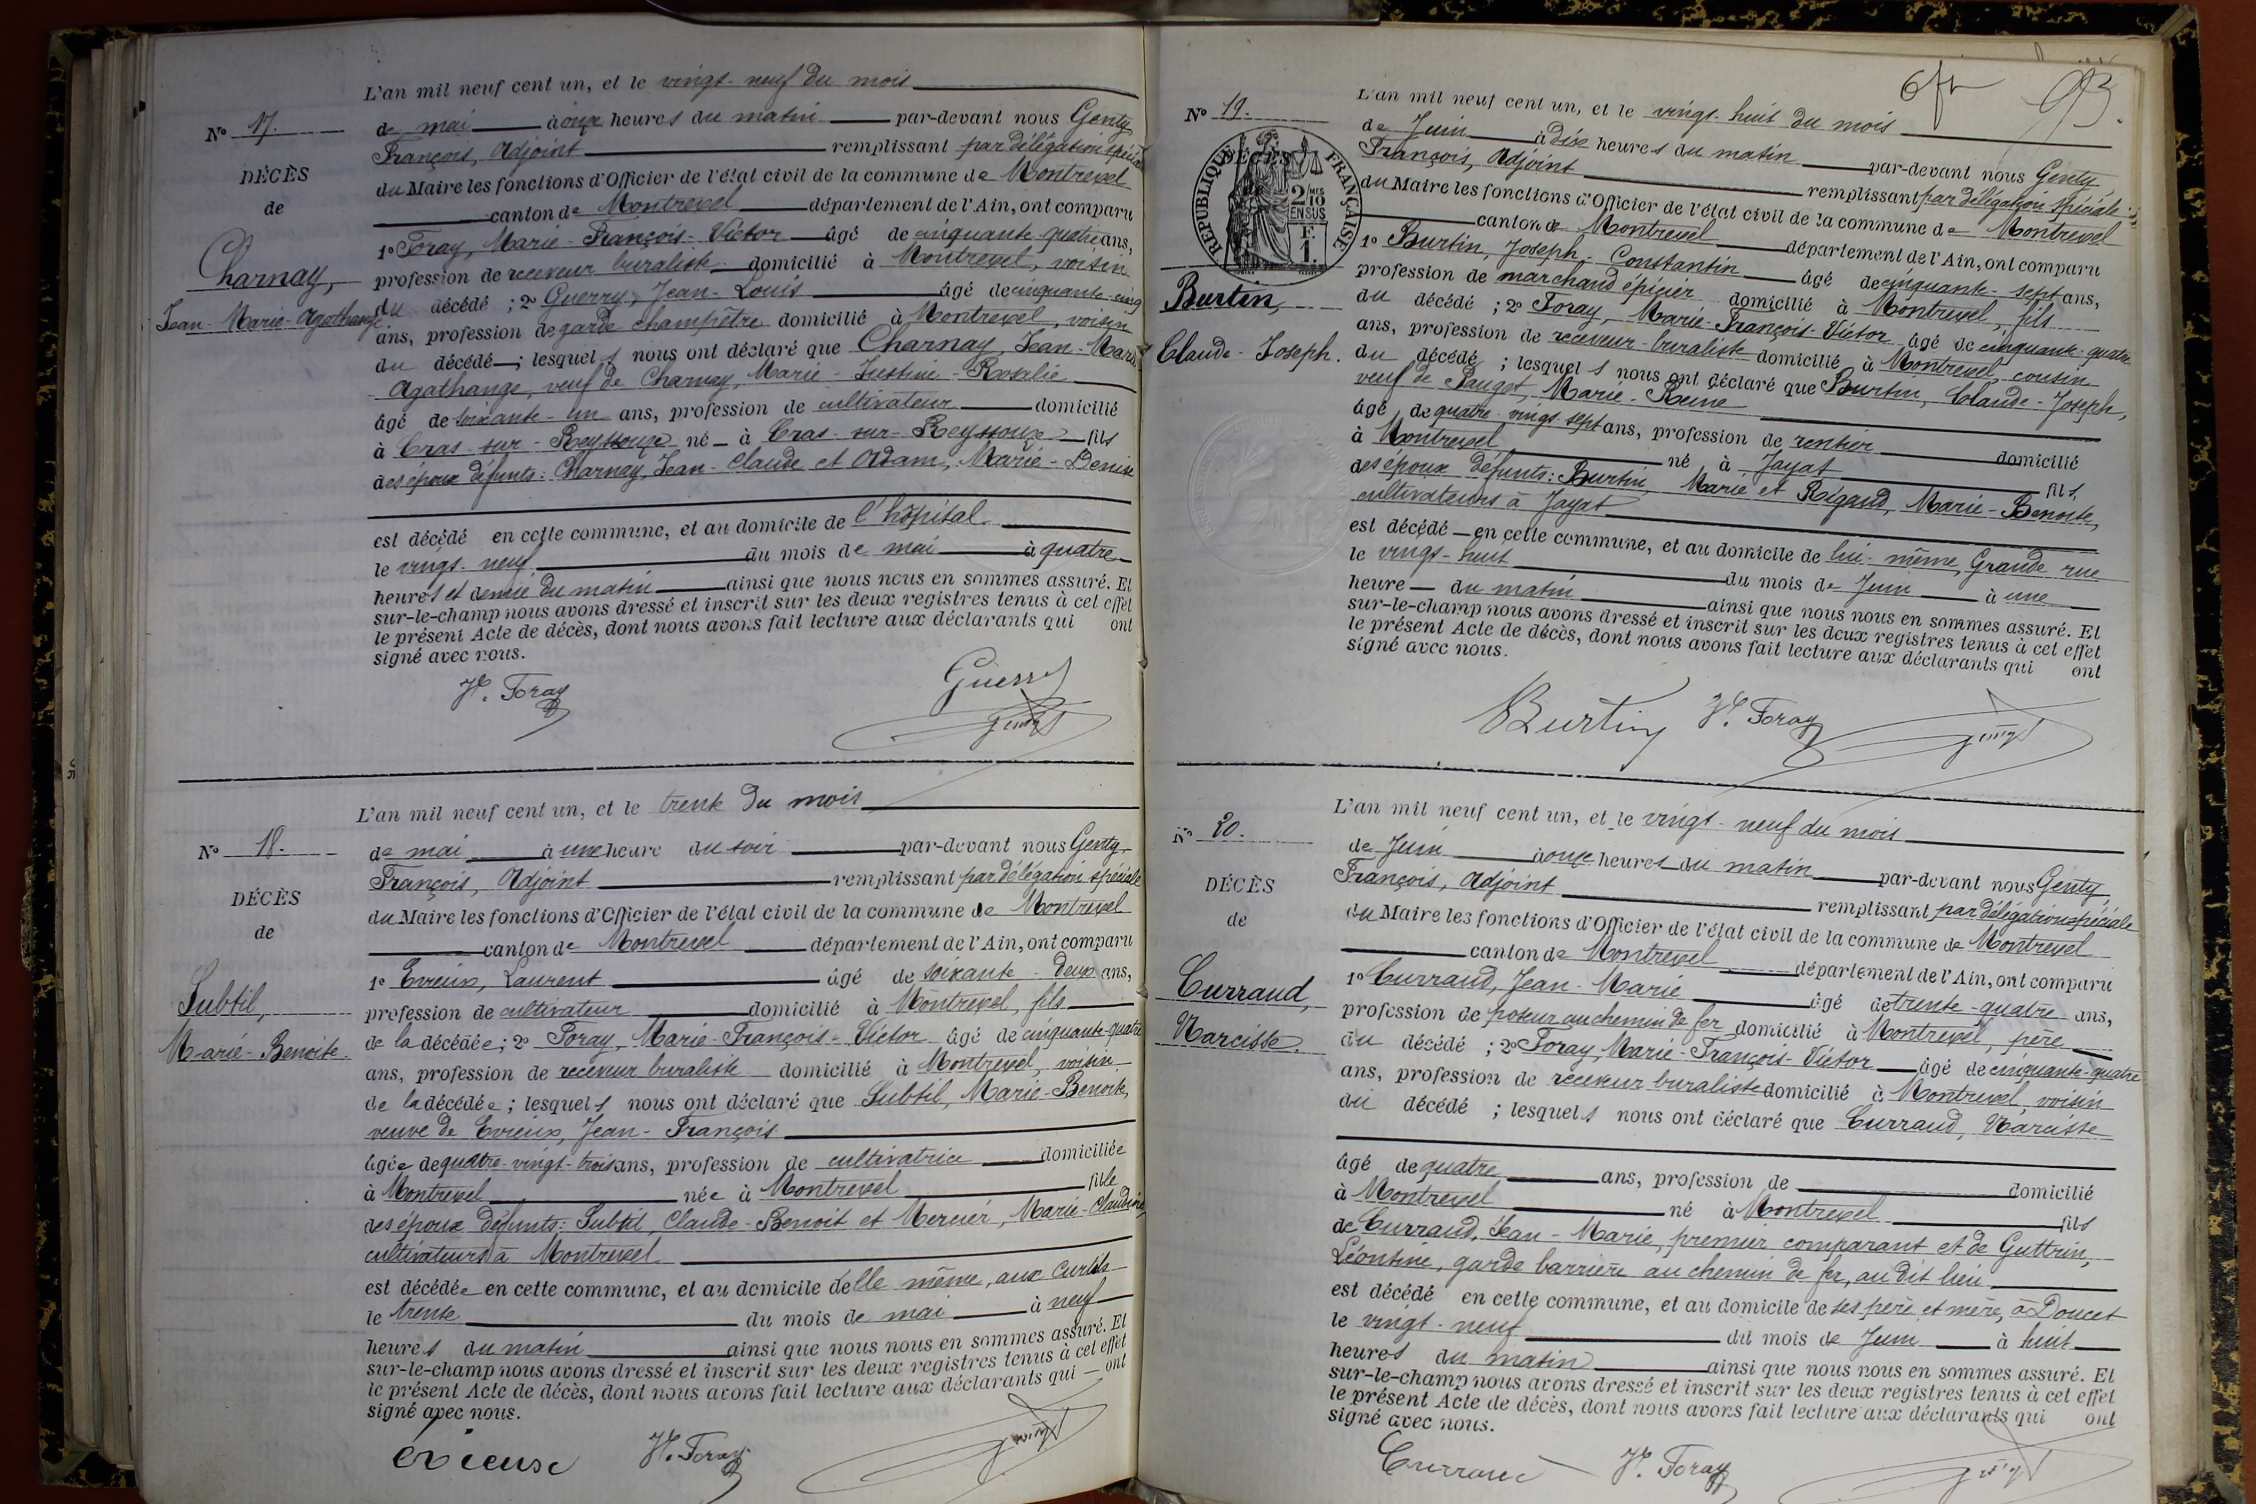 L'an mil neuf cent un, et le vingt-neuf du mois
N° 17.
de mai à onze heures du matin par-devant nous Genty
François, Adjoint remplissant par délégation spéciale
DÉCÈS
du Maire les fonctions d'Officier de l'état civil de la commune de Montrevel
de
canton de Montrevel département de l'Ain, ont comparu
1° Foray, Marie-François-Victor âgé de cinquante-quatre ans,
Charnay,
profession de receveur buraliste domicilié à Montrevel, voisin
Jean-Marie-Agathange
du décédé ; 2° Guerry, Jean-Louis âgé de cinquante-cinq
ans, profession de garde champêtre domicilié à Montrevel, voisin
du décédé ; lesquels nous ont déclaré que Charnay, Jean-Marie
Agathange, veuf de Charnay, Marie-Justine-Rosalie
âgé de soixante-un ans, profession de cultivateur domicilié
à Cras-sur-Reyssouze né à Cras-sur-Reyssouze fils
des époux défunts: Charnay, Jean-Claude et Adam, Marie-Denise
est décédé en cette commune, et au domicile de l'hôpital
le vingt-neuf du mois de mai à quatre
heures et demie du matin ainsi que nous nous en sommes assuré. Et
sur-le-champ nous avons dressé et inscrit sur les deux registres tenus à cet effet
le présent Acte de décès, dont nous avons fait lecture aux déclarants qui ont
signé avec nous.
Vr. Foray Guerry
Genty
L'an mil neuf cent un, et le trente du mois
N° 18.
de mai à une heure du soir par-devant nous Genty
François, Adjoint remplissant par délégation spéciale
DÉCÈS
du Maire les fonctions d'Officier de l'état civil de la commune de Montrevel
de
canton de Montrevel département de l'Ain, ont comparu
1° Evieux, Laurent âgé de soixante-deux ans,
Subtil,
profession de cultivateur domicilié à Montrevel, fils
Marie-Benoite.
de la décédée ; 2° Foray, Marie-François-Victor âgé de cinquante-quatre
ans, profession de receveur buraliste domicilié à Montrevel, voisin
de la décédée ; lesquels nous ont déclaré que Subtil, Marie-Benoite,
veuve de Evieux, Jean-François
âgée de quatre-vingt-trois ans, profession de cultivatrice domiciliée
à Montrevel née à Montrevel fille
des époux défunts: Subtil, Claude-Benoit et Mercier, Marie-Claudine,
cultivateurs à Montrevel
est décédée en cette commune, et au domicile d'elle même, aux Curtils
le trente du mois de mai à neuf
heures du matin ainsi que nous nous en sommes assuré. Et
sur-le-champ nous avons dressé et inscrit sur les deux registres tenus à cet effet
le présent Acte de décès, dont nous avons fait lecture aux déclarants qui ont
signé avec nous.
évieux Vr. Foray Genty
93.
L'an mil neuf cent un, et le vingt-huit du mois
N° 19.
de Juin à dix heures du matin par-devant nous Genty
François, Adjoint remplissant par délégation spéciale
DÉCÈS
RÉPUBLIQUE FRANÇAISE
2 MES 10
EN SUS
F.
1.
du Maire les fonctions d'Officier de l'état civil de la commune de Montrevel
canton de Montrevel département de l'Ain, ont comparu
1° Burtin, Joseph-Constantin âgé de cinquante-sept ans,
Burtin,
profession de marchand épicier domicilié à Montrevel, fils
Claude-Joseph.
du décédé ; 2° Foray, Marie-François-Victor âgé de cinquante-quatre
ans, profession de receveur-buraliste domicilié à Montrevel, cousin
du décédé ; lesquels nous ont déclaré que Burtin, Claude-Joseph,
veuf de Pauget, Marie-Reine
âgé de quatre-vingt-sept ans, profession de rentier domicilié
à Montrevel né à Jayat fils
des époux défunts: Burtin, Marie et Rigaud, Marie-Benoite,
cultivateurs à Jayat
est décédé en cette commune, et au domicile de lui-même, Grande rue
le vingt-huit du mois de Juin à une
heure du matin ainsi que nous nous en sommes assuré. Et
sur-le-champ nous avons dressé et inscrit sur les deux registres tenus à cet effet
le présent Acte de décès, dont nous avons fait lecture aux déclarants qui ont
signé avec nous.
Burtin Vr. Foray Genty
L'an mil neuf cent un, et le vingt-neuf du mois
N° 20.
de Juin à onze heures du matin par-devant nous Genty,
François, Adjoint remplissant par délégation spéciale
DÉCÈS
du Maire les fonctions d'Officier de l'état civil de la commune de Montrevel
de
canton de Montrevel département de l'Ain, ont comparu
1° Curraud, Jean-Marie âgé de trente-quatre ans,
Curraud,
profession de poseur au chemin de fer domicilié à Montrevel, père
Narcisse.
du décédé ; 2° Foray, Marie-François-Victor âgé de cinquante-quatre
ans, profession de receveur buraliste domicilié à Montrevel, voisin
du décédé ; lesquels nous ont déclaré que Curraud, Narcisse
âgé de quatre ans, profession de domicilié
à Montrevel né à Montrevel fils
de Curraud, Jean-Marie, premier comparant et de Guttrin,
Léontine, garde barrière au chemin de fer, au dit lieu
est décédé en cette commune, et au domicile de ses père et mère, à Doucet
le vingt-neuf du mois de Juin à huit
heures du matin ainsi que nous nous en sommes assuré. Et
sur-le-champ nous avons dressé et inscrit sur les deux registres tenus à cet effet
le présent Acte de décès, dont nous avons fait lecture aux déclarants qui ont
signé avec nous.
Curraud Vr. Foray Genty